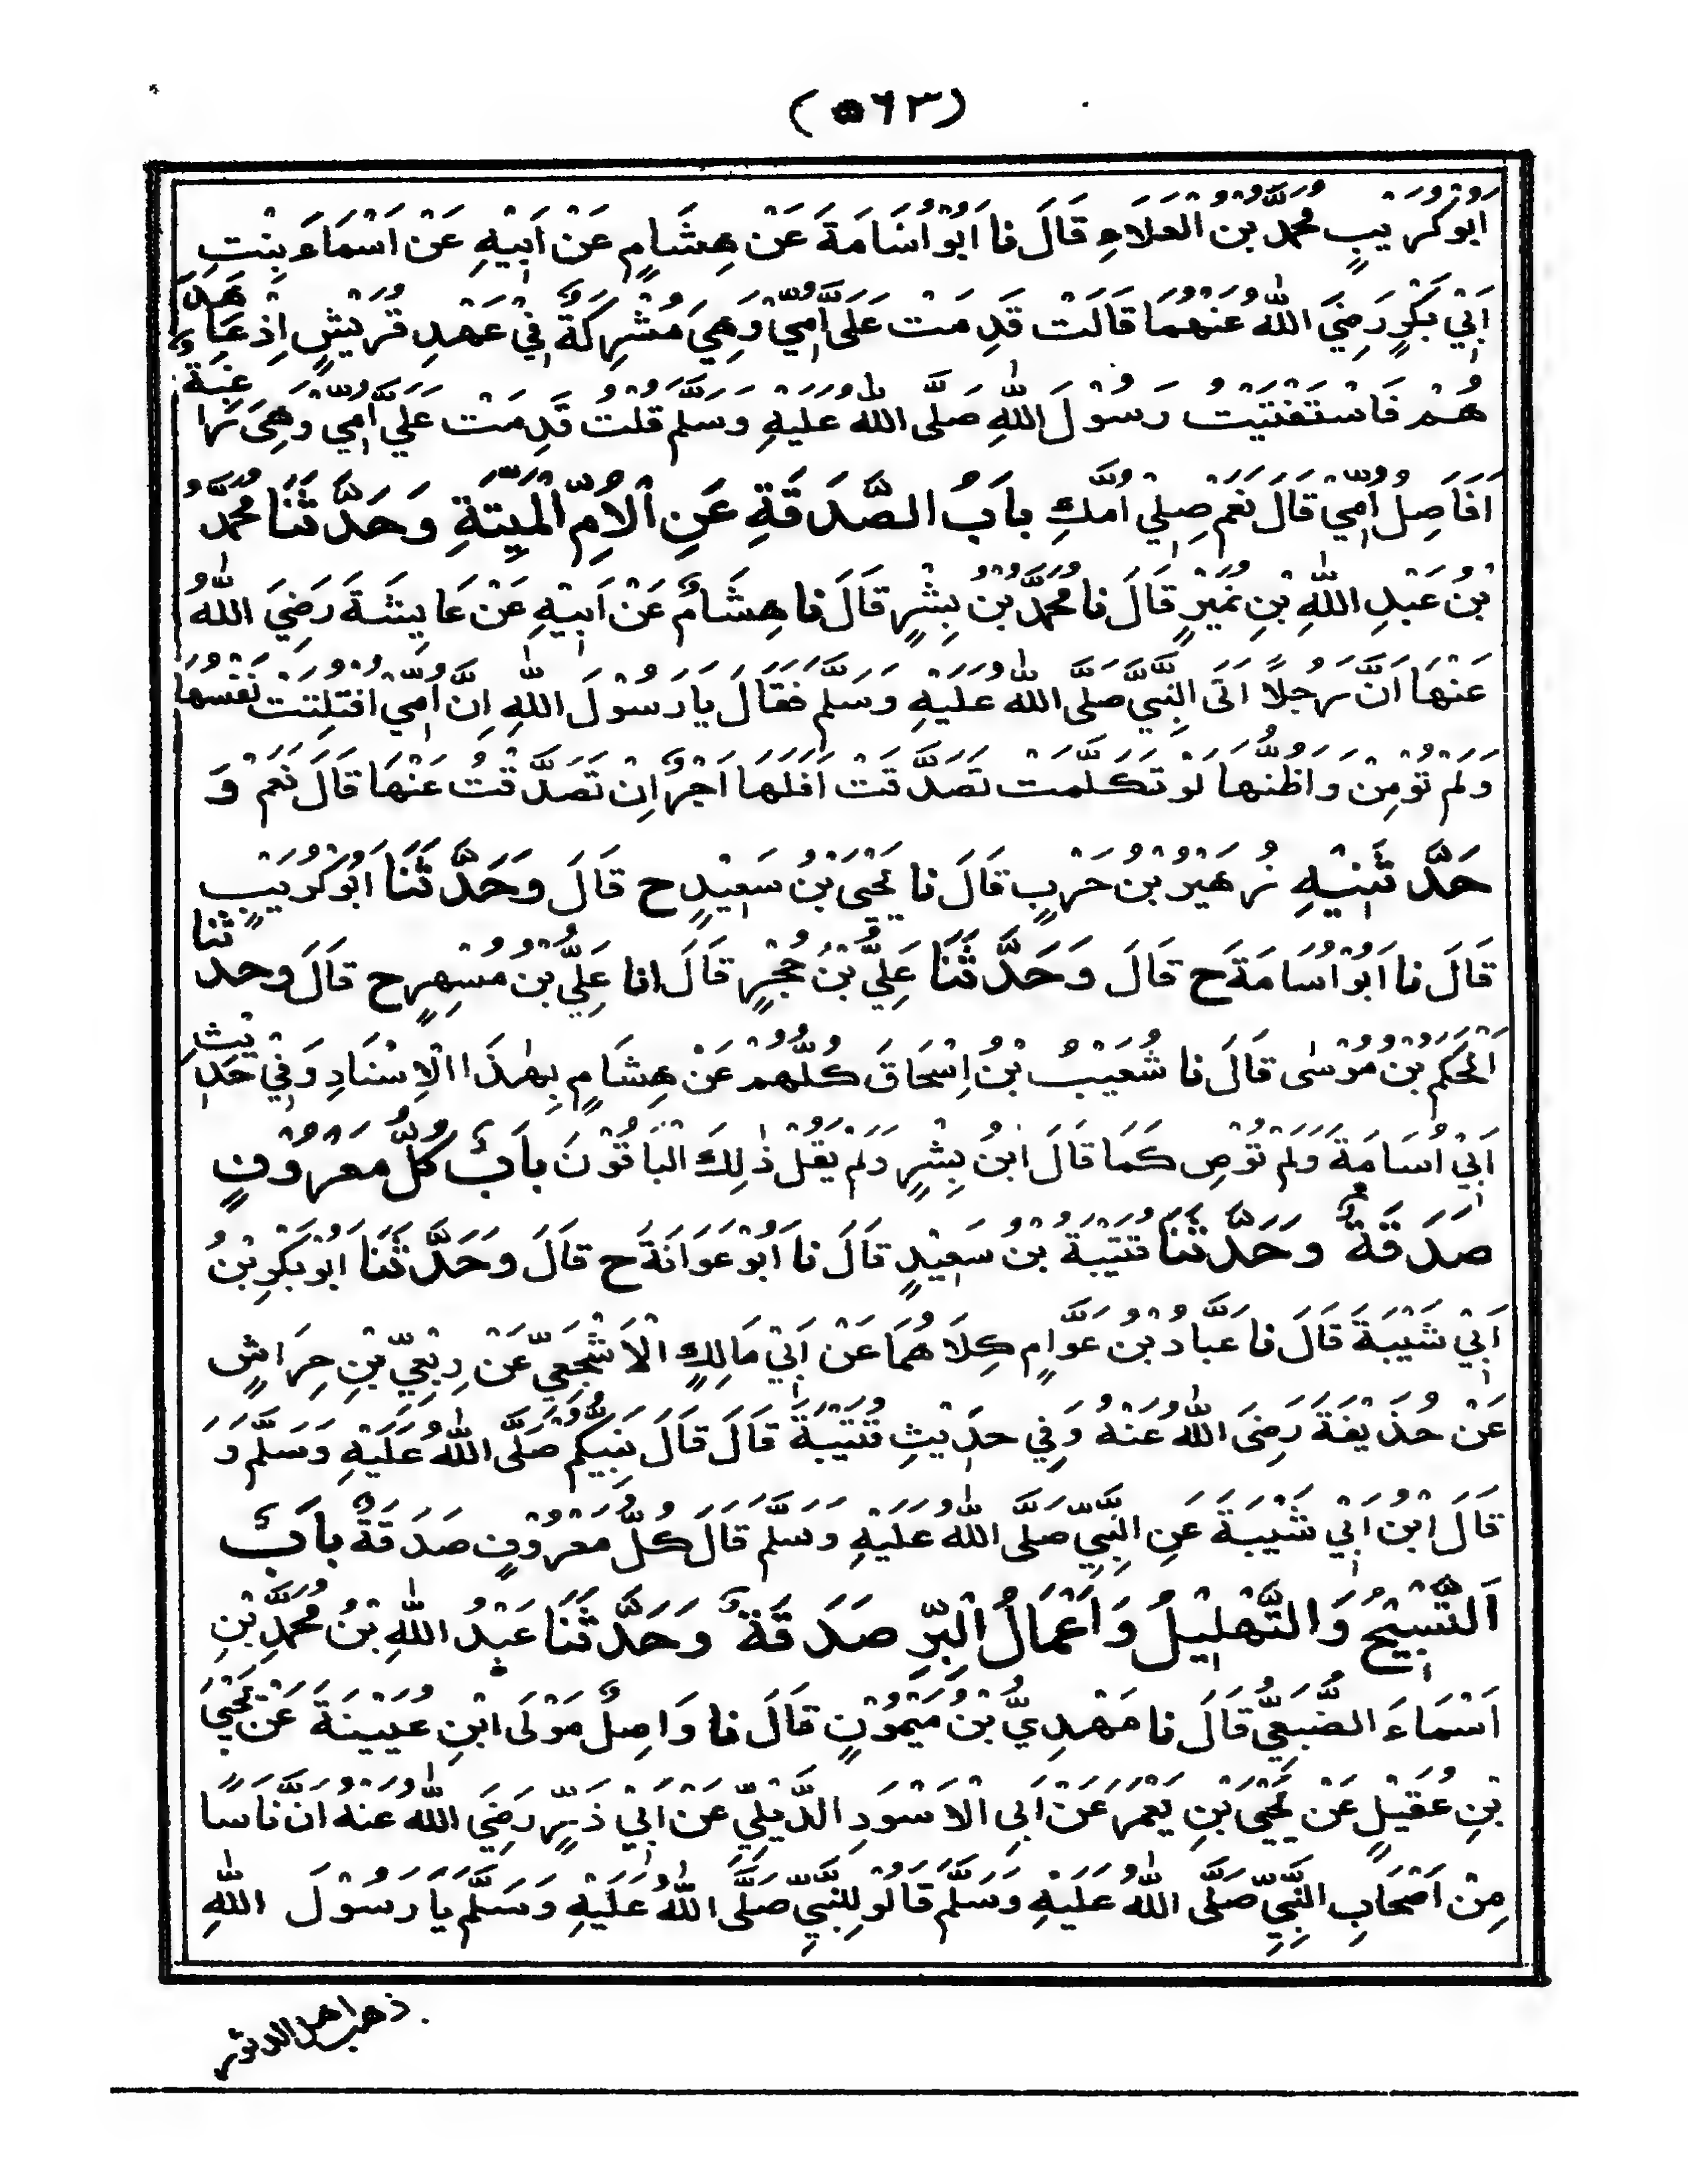 (٥٦٣)
اَبُوْكُرَيْبٍ مُحَمَّدُ بْنُ الْعَلَاءِ قَالَ نا اَبُوْ اُسَامَةَ عَنْ هِشَامٍ عَنْ اَبِيْهِ عَنْ اَسْمَاءَ بِنْتِ
اَبِيْ بَكْرٍ رَضِيَ اللّٰهُ عَنْهُمَا قَالَتْ قَدِمَتْ عَلَىَّ اُمِّيْ وَهِيَ مُشْرِكَةٌ فِيْ عَهْدِ قُرَيْشٍ اِذْ عَاهَدَ
هُمْ فَاسْتَفْتَيْتُ رَسُوْلَ اللّٰهِ صَلَّى اللّٰهُ عَلَيْهِ وَسَلَّمَ قُلْتُ قَدِمَتْ عَلَيَّ اُمِّيْ وَهِىَ رَاغِبَةٌ
اَفَاَصِلُ اُمِّيْ قَالَ نَعَمْ صِلِيْ اُمَّكِ بَابُ الصَّدَقَةِ عَنِ الْاُمِّ الْمَيِّتَةِ وَحَدَّثَنَا مُحَمَّدُ
بْنُ عَبْدِ اللّٰهِ بْنِ نُمَيْرٍ قَالَ نا مُحَمَّدُ بْنُ بِشْرٍ قَالَ نا هِشَامٌ عَنْ اَبِيْهِ عَنْ عَايِشَةَ رَضِيَ اللّٰهُ
عَنْهَا اَنَّ رَجُلًا اَتَى النَّبِيَّ صَلَّى اللّٰهُ عَلَيْهِ وَسَلَّمَ فَقَالَ يَا رَسُوْلَ اللّٰهِ اِنَّ اُمِّيَ افْتُلِتَتْ نَفْسُهَا
وَلَمْ تُوْصِ وَاَظُنُّهَا لَوْ تَكَلَّمَتْ تَصَدَّقَتْ اَفَلَهَا اَجْرٌ اِنْ تَصَدَّقْتُ عَنْهَا قَالَ نَعَمْ وَ
حَدَّثَنِيْهِ زُهَيْرُ بْنُ حَرْبٍ قَالَ نا يَحْيَى بْنُ سَعِيْدٍ ح قَالَ وَحَدَّثَنَا اَبُوْكُرَيْبٍ
قَالَ نا اَبُوْ اُسَامَةَ ح قَالَ وَحَدَّثَنَا عَلِيُّ بْنُ حُجْرٍ قَالَ انا عَلِيُّ بْنُ مُسْهِرٍ ح قَالَ وحدثنا
الْحَكَمُ بْنُ مُوْسٰى قَالَ نا شُعَيْبُ بْنُ اِسْحَاقَ كُلُّهُمْ عَنْ هِشَامٍ بِهٰذَا الْاِسْنَادِ وَفِيْ حَدِيْثِ
اَبِيْ اُسَامَةَ وَلَمْ تُوْصِ كَمَا قَالَ ابْنُ بِشْرٍ وَلَمْ يَقُلْ ذٰلِكَ الْبَاقُوْنَ بَابٌ كُلُّ مَعْرُوْفٍ
صَدَقَةٌ وَحَدَّثَنَا قُتَيْبَةُ بْنُ سَعِيْدٍ قَالَ نا اَبُوْعَوَانَةَ ح قَالَ وَحَدَّثَنَا اَبُوْبَكْرِ بْنُ
اَبِيْ شَيْبَةَ قَالَ نا عَبَّادُ بْنُ عَوَّامٍ كِلَاهُمَا عَنْ اَبِيْ مَالِكٍ الْاَشْجَعِيِّ عَنْ رِبْعِيِّ بْنِ حِرَاشٍ
عَنْ حُذَيْفَةَ رَضِىَ اللّٰهُ عَنْهُ وَفِي حَدِيْثِ قُتَيْبَةَ قَالَ قَالَ نَبِيُّكُمْ صَلَّى اللّٰهُ عَلَيْهِ وَسَلَّمَ وَ
قَالَ ابْنُ اَبِيْ شَيْبَةَ عَنِ النَّبِيِّ صَلَّى اللّٰهُ عَلَيْهِ وَسَلَّمَ قَالَ كُلُّ مَعْرُوْفٍ صَدَقَةٌ بَابٌ
اَلتَّسْبِيْحُ وَالتَّهْلِيْلُ وَاَعْمَالُ الْبِرِّ صَدَقَةٌ وَحَدَّثَنَا عَبْدُ اللّٰهِ بْنُ مُحَمَّدِ بْنِ
اَسْمَاءَ الضُّبَعِيُّ قَالَ نا مَهْدِيُّ بْنُ مَيْمُوْنٍ قَالَ نا وَاصِلٌ مَوْلَى ابْنِ عُيَيْنَةَ عَنْ يَحْيَى
بْنِ عُقَيْلٍ عَنْ يَّحْيَى بْنِ يَعْمَرَ عَنْ اَبِى الْاَسْوَدِ الدِّيْلِيِّ عَنْ اَبِيْ ذَرٍّ رَضِيَ اللّٰهُ عَنْهُ اَنَّ نَاسًا
مِنْ اَصْحَابِ النَّبِيِّ صَلَّى اللّٰهُ عَلَيْهِ وَسَلَّمَ قَالُوْ لِلنَّبِيِّ صَلَّى اللّٰهُ عَلَيْهِ وَسَلَّمَ يَا رَسُوْلَ اللّٰهِ
ذهب اهل الدثور